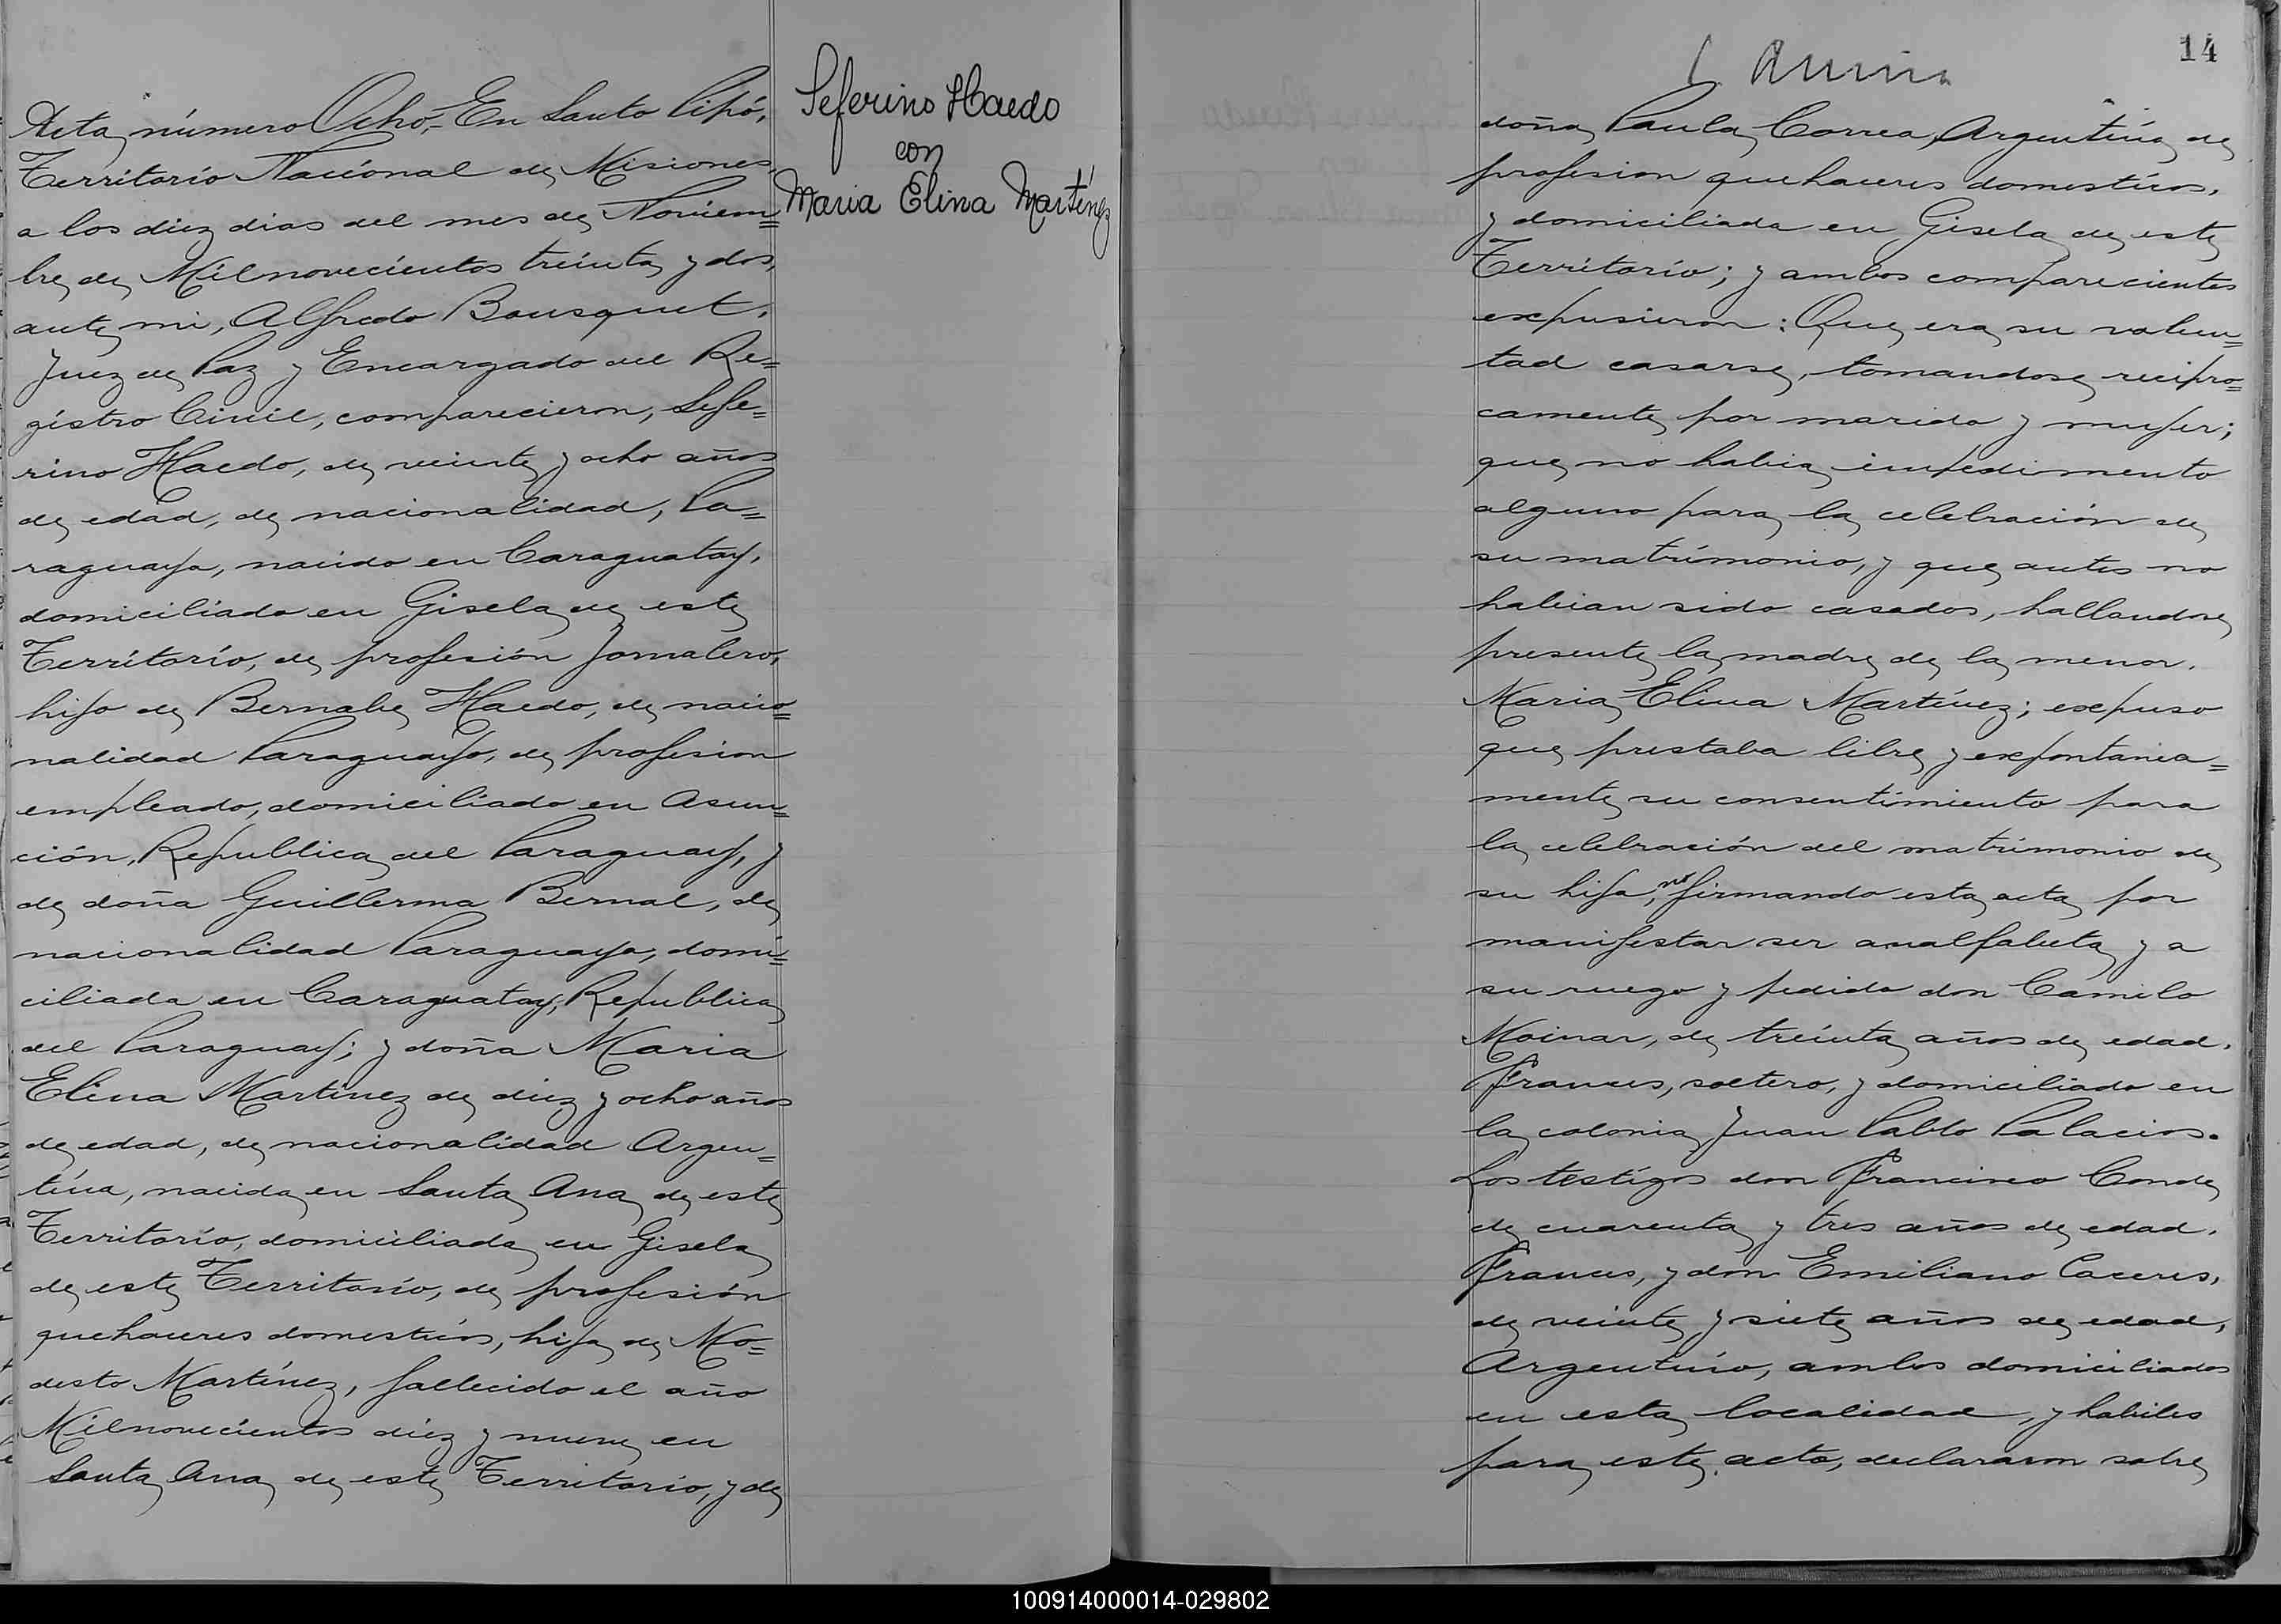 Acta número Ocho,- En Santo Pipó,
Territorio Nacional de Misiones,
a los diez dias del mes de Noviem=
bre de Mil novecientos treinta y dos,
ante mi, Alfredo Bousquet,
Juez de Paz y Encargado del Re=
gistro Civil, comparecieron, Sefe=
rino Haedo, de veinte y ocho años
de edad, de nacionalidad, Pa=
raguaya, nacido en Caraguatay,
domiciliado en Gisela de este
Territorio, de profesión Jornalero,
hijo de Bernabe Haedo, de nacio=
nalidad Paraguayo, de profesion
empleado, domiciliado en Asun=
ción, Republica del Paraguay, y
de doña Guillerma Bernal, de
nacionalidad Paraguaya, domi=
ciliada en Caraguatay, Republica
del Paraguay; y doña Maria
Elina Martinez de diez y ocho años
de edad, de nacionalidad Argen=
tina, nacida en Santa Ana de este
Territorio, domiciliada en Gisela
de este Territorio, de profesión
quehaceres domesticos, hija de Mo=
desto Martinez, fallecido el año
Mil novecientos diez y nueve en
Santa Ana de este Territorio, y de
Seferino Haedo
con
Maria Elina Martínez
14
doña Paula Correa, Argentina de
profesion quehaceres domesticos,
y domiciliada en Gisela de este
Territorio; y ambos comparecientes
expusieron: Que era su volun=
tad casarse, tomandose recipro=
camente por marido y mujer;
que no habia impedimento
alguno para la celebración de
su matrimonio, y que antes no
habian sido casados, hallandose
presente la madre de la menor.
Maria Elina Martínez; expuso
que prestaba libre y expontanea=
mente su consentimiento para
la celebración del matrimonio de
su hija, no firmando esta acta por
manifestar ser analfabeta y a
su ruego y pedido don Camilo
Moinar, de treinta años de edad,
Frances, soltero, y domiciliado en
la colonia Juan Pablo Palacios.
Los testigos don Francisco Conde
de cuarenta y tres años de edad,
Frances, y don Emiliano Caceres,
de veinte y siete años de edad,
Argentino, ambos domiciliados
en esta localidad, y habiles
para este acto, declararon sobre
100914000014-029802